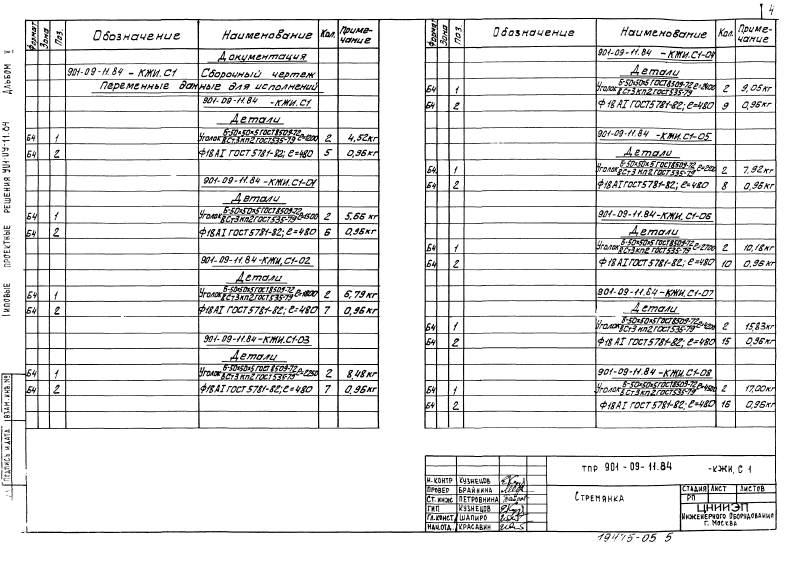 4
Альбом I
Типовые проектные решения 901-09-11.84
Взам. инв. №
Подпись и дата
Формат Зона Поз. Обозначение Наименование Кол. Примечание
Документация
901-09-11.84 - КЖИ.С1 Сборочный чертеж
Переменные данные для исполнений
901-09-11.84 - КЖИ.С1
Детали
Б4 1 Уголок Б-50×50×5 ГОСТ 8509-72 / ВСт3кп2 ГОСТ 535-79 ℓ=1200 2 4,52кг
Б4 2 Ф18АI ГОСТ 5781-82; ℓ=480 5 0,96кг
901-09-11.84 -КЖИ.С1-01
Детали
Б4 1 Уголок Б-50×50×5 ГОСТ 8509-72 / ВСт3кп2 ГОСТ 535-79 ℓ=1500 2 5,66кг
Б4 2 Ф18АI ГОСТ 5781-82; ℓ=480 6 0,96кг
901-09-11.84 -КЖИ.С1-02
Детали
Б4 1 Уголок Б-50×50×5 ГОСТ 8509-72 / ВСт3кп2 ГОСТ 535-79 ℓ=1800 2 6,79кг
Б4 2 Ф18АI ГОСТ 5781-82; ℓ=480 7 0,96кг
901-09-11.84-КЖИ.С1-03
Детали
Б4 1 Уголок Б-50×50×5 ГОСТ 8509-72 / ВСт3кп2 ГОСТ 535-79 ℓ=2250 2 8,48кг
Б4 2 Ф18АI ГОСТ 5781-82; ℓ=480 7 0,96кг
Формат Зона Поз. Обозначение Наименование Кол. Примечание
901-09-11.84 -КЖИ.С1-04
Детали
Б4 1 Уголок Б-50×50×5 ГОСТ 8509-72 / ВСт3кп2 ГОСТ 535-79 ℓ=2400 2 9,05кг
Б4 2 Ф18АI ГОСТ 5781-82; ℓ=480 9 0,96кг
901-09-11.84 -КЖИ.С1-05
Детали
Б4 1 Уголок Б-50×50×5 ГОСТ 8509-72 / ВСт3кп2 ГОСТ 535-79 ℓ=2100 2 7,92кг
Б4 2 Ф18АI ГОСТ 5781-82; ℓ=480 8 0,96кг
901-09-11.84 -КЖИ.С1-06
Детали
Б4 1 Уголок Б-50×50×5 ГОСТ 8509-72 / ВСт3кп2 ГОСТ 535-79 ℓ=2700 2 10,18кг
Б4 2 Ф18АI ГОСТ 5781-82; ℓ=480 10 0,96кг
901-09-11.84 -КЖИ.С1-07
Детали
Б4 1 Уголок Б-50×50×5 ГОСТ 8509-72 / ВСт3кп2 ГОСТ 535-79 ℓ=4200 2 15,83кг
Б4 2 Ф18АI ГОСТ 5781-82; ℓ=480 15 0,96кг
901-09-11.84 -КЖИ.С1-08
Детали
Б4 1 Уголок Б-50×50×5 ГОСТ 8509-72 / ВСт3кп2 ГОСТ 535-79 ℓ=4500 2 17,00кг
Б4 2 Ф18АI ГОСТ 5781-82; ℓ=480 16 0,96кг
ТПР 901-09-11.84 -КЖИ.С1
Н.контр Кузнецов
Провер Брайнина
Ст. инж Петровнина
ГИП Кузнецов
Гл.конст. Шапиро
Нач.отд. Красавин
Стремянка
Стадия Лист Листов
РП
ЦНИИЭП
Инженерного оборудования
г. Москва
19475-05 5